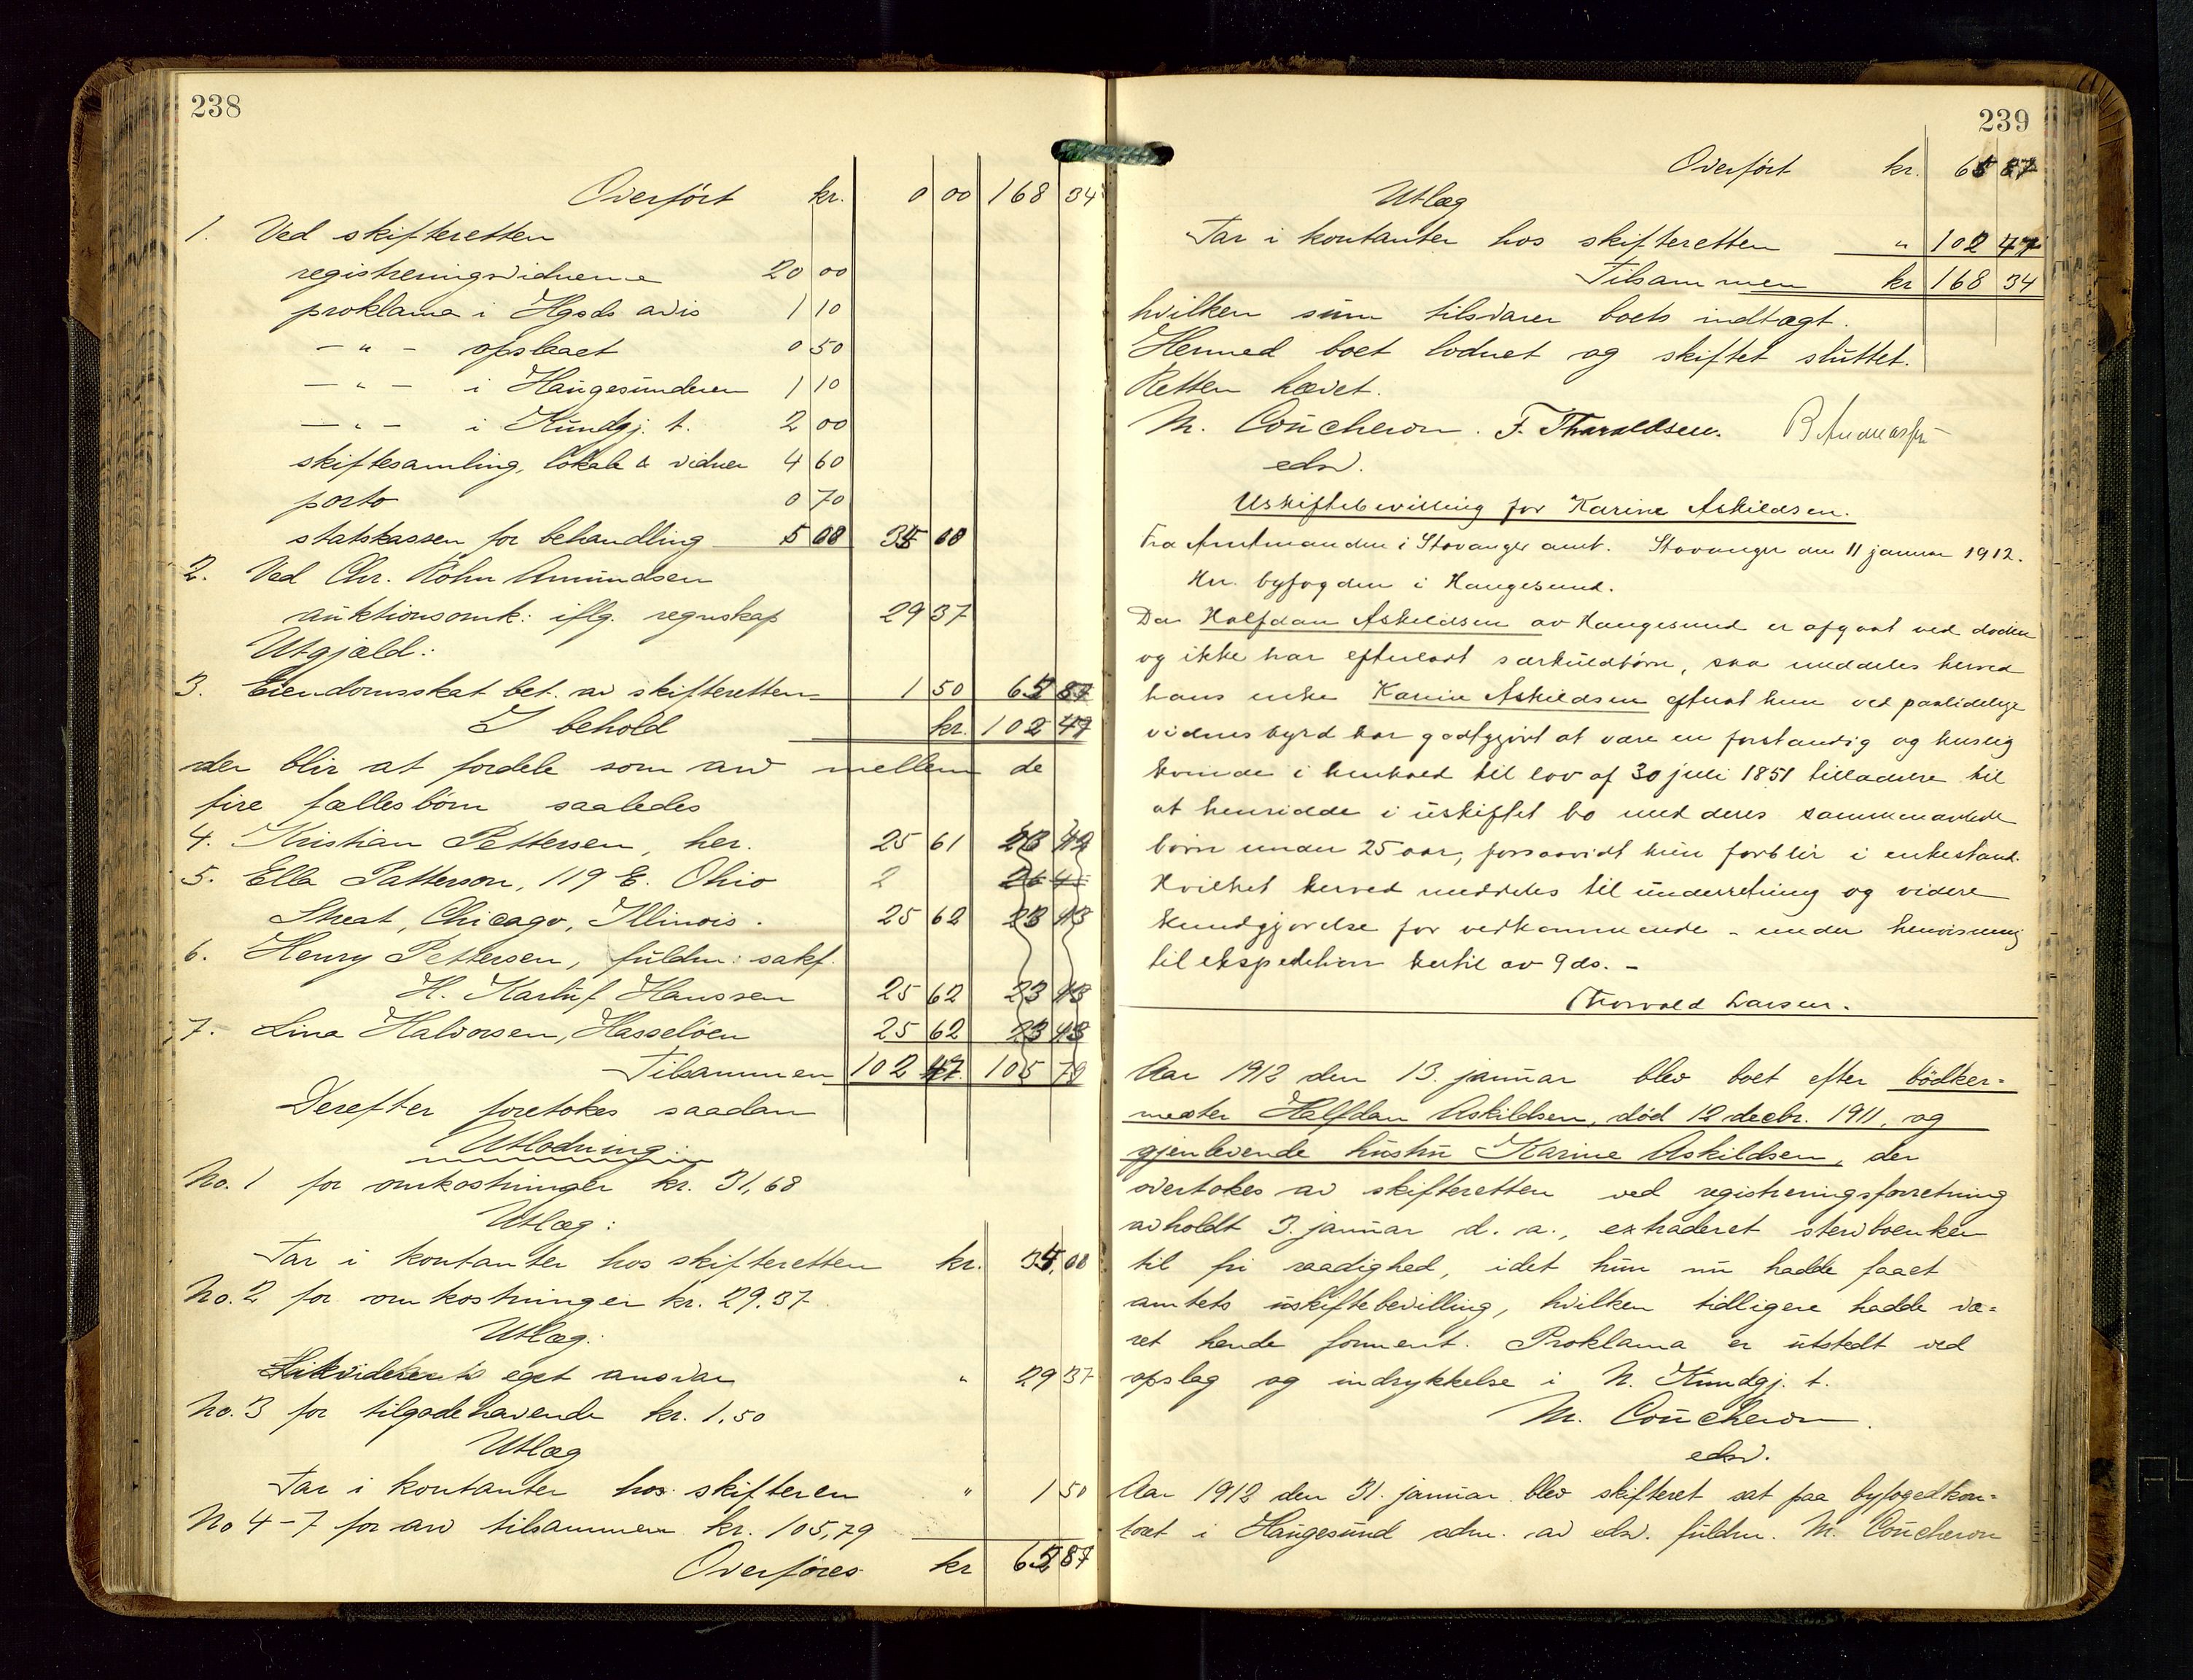 238
Overført kr. 0 00 168 34
1. Ved skifteretten
registreringsvidnerne 20 00
proklama i Hgsds avis 1 10
— " — opslaaet 0 50
— " — i Haugesunderen 1 10
— " — i Kundgj. t. 2 00
skiftesamling, lokale & vidner 4 60
porto 0 70
statskassen for behandling 5 00 35 00
2. Ved Chr. Røhn Amundsen
auktionsomk: iflg. regnskap 29 37
Utgjæld:
3. Eiendomsskat bet. av skifteretten 1 50 65 87
I behold kr. 102 47
der blir at fordele som arv mellem de
fire fællesbørn saaledes
4. Kristian Pettersen, her. 25 61
5. Ella Patterson, 119 E. Ohio
Street, Chicago, Illinois. 25 62
6. Henry Pettersen, fuldm: sakf.
H. Karluf Hanssen 25 62
7. Lina Halvorsen, Hasseløen 25 62
Tilsammen 102 47 105 79
Derefter foretokes saadan
Utlodning:
No. 1 for omkostninger kr. 31,68
Utlæg:
Tar i kontanter hos skifteretten kr. 35,00
No. 2 for omkostninger kr. 29.37
Utlæg:
Likvideres eget ansvar " 29 37
No. 3 for tilgodehavende kr. 1.50
Utlæg
Tar i kontanter hos skifteren " 1 50
No 4-7 for arv tilsammen kr. 105,79
Overføres kr 65 87
239
Overført kr. 65 87
Utlæg
Tar i kontanter hos skifteretten " 102 47
Tilsammen kr 168 34
hvilken sum tilsvarer boets indtægt.
Hermed boet lodnet og skiftet sluttet.
Retten hævet.
M. Coucheron. T. Tharaldsen. B Andreassen
edsv.
Uskiftebevilling for Karine Askildsen.
Fra Amtmanden i Stavanger amt. Stavanger den 11 januar 1912.
Hr. byfogden i Haugesund.
Da Halfdan Askildsen av Haugesund er afgaat ved døden
og ikke har efterladt særkuldbørn, saa meddeles herved
hans enke Karine Askildsen efterat hun ved paalidelige
vidnesbyrd har godtgjort at være en forstandig og huslig
kvinde i henhold til lov af 30 juli 1851 tilladelse til
at hensidde i uskiftet bo med deres sammenavlede
børn under 25 aar, forsaavidt hun forblir i enkestand.
Hvilket herved meddeles til underretning og videre
kundgjørelse for vedkommende - under henvisning
til ekspedition hertil av 9 ds. -
Thorvald Larsen.
Aar 1912 den 13. januar blev boet efter bødker=
mester Halfdan Askildsen, død 12 decbr. 1911, og
gjenlevende hustru Karine Askildsen, der
overtokes av skifteretten ved registreringsforretning
avholdt 3. januar d. a., extraderet stervboenken
til fri raadighed, idet hun nu hadde faaet
amtets uskiftebevilling, hvilken tidligere hadde væ=
ret hende forment. Proklama er utstedt ved
opslag og indrykkelse i N. Kundgj. t.
M. Coucheron.
edsv.
Aar 1912 den 31. januar blev skifteret sat paa byfogedkon=
toret i Haugesund adm. av edsv. fuldm. M. Coucheron